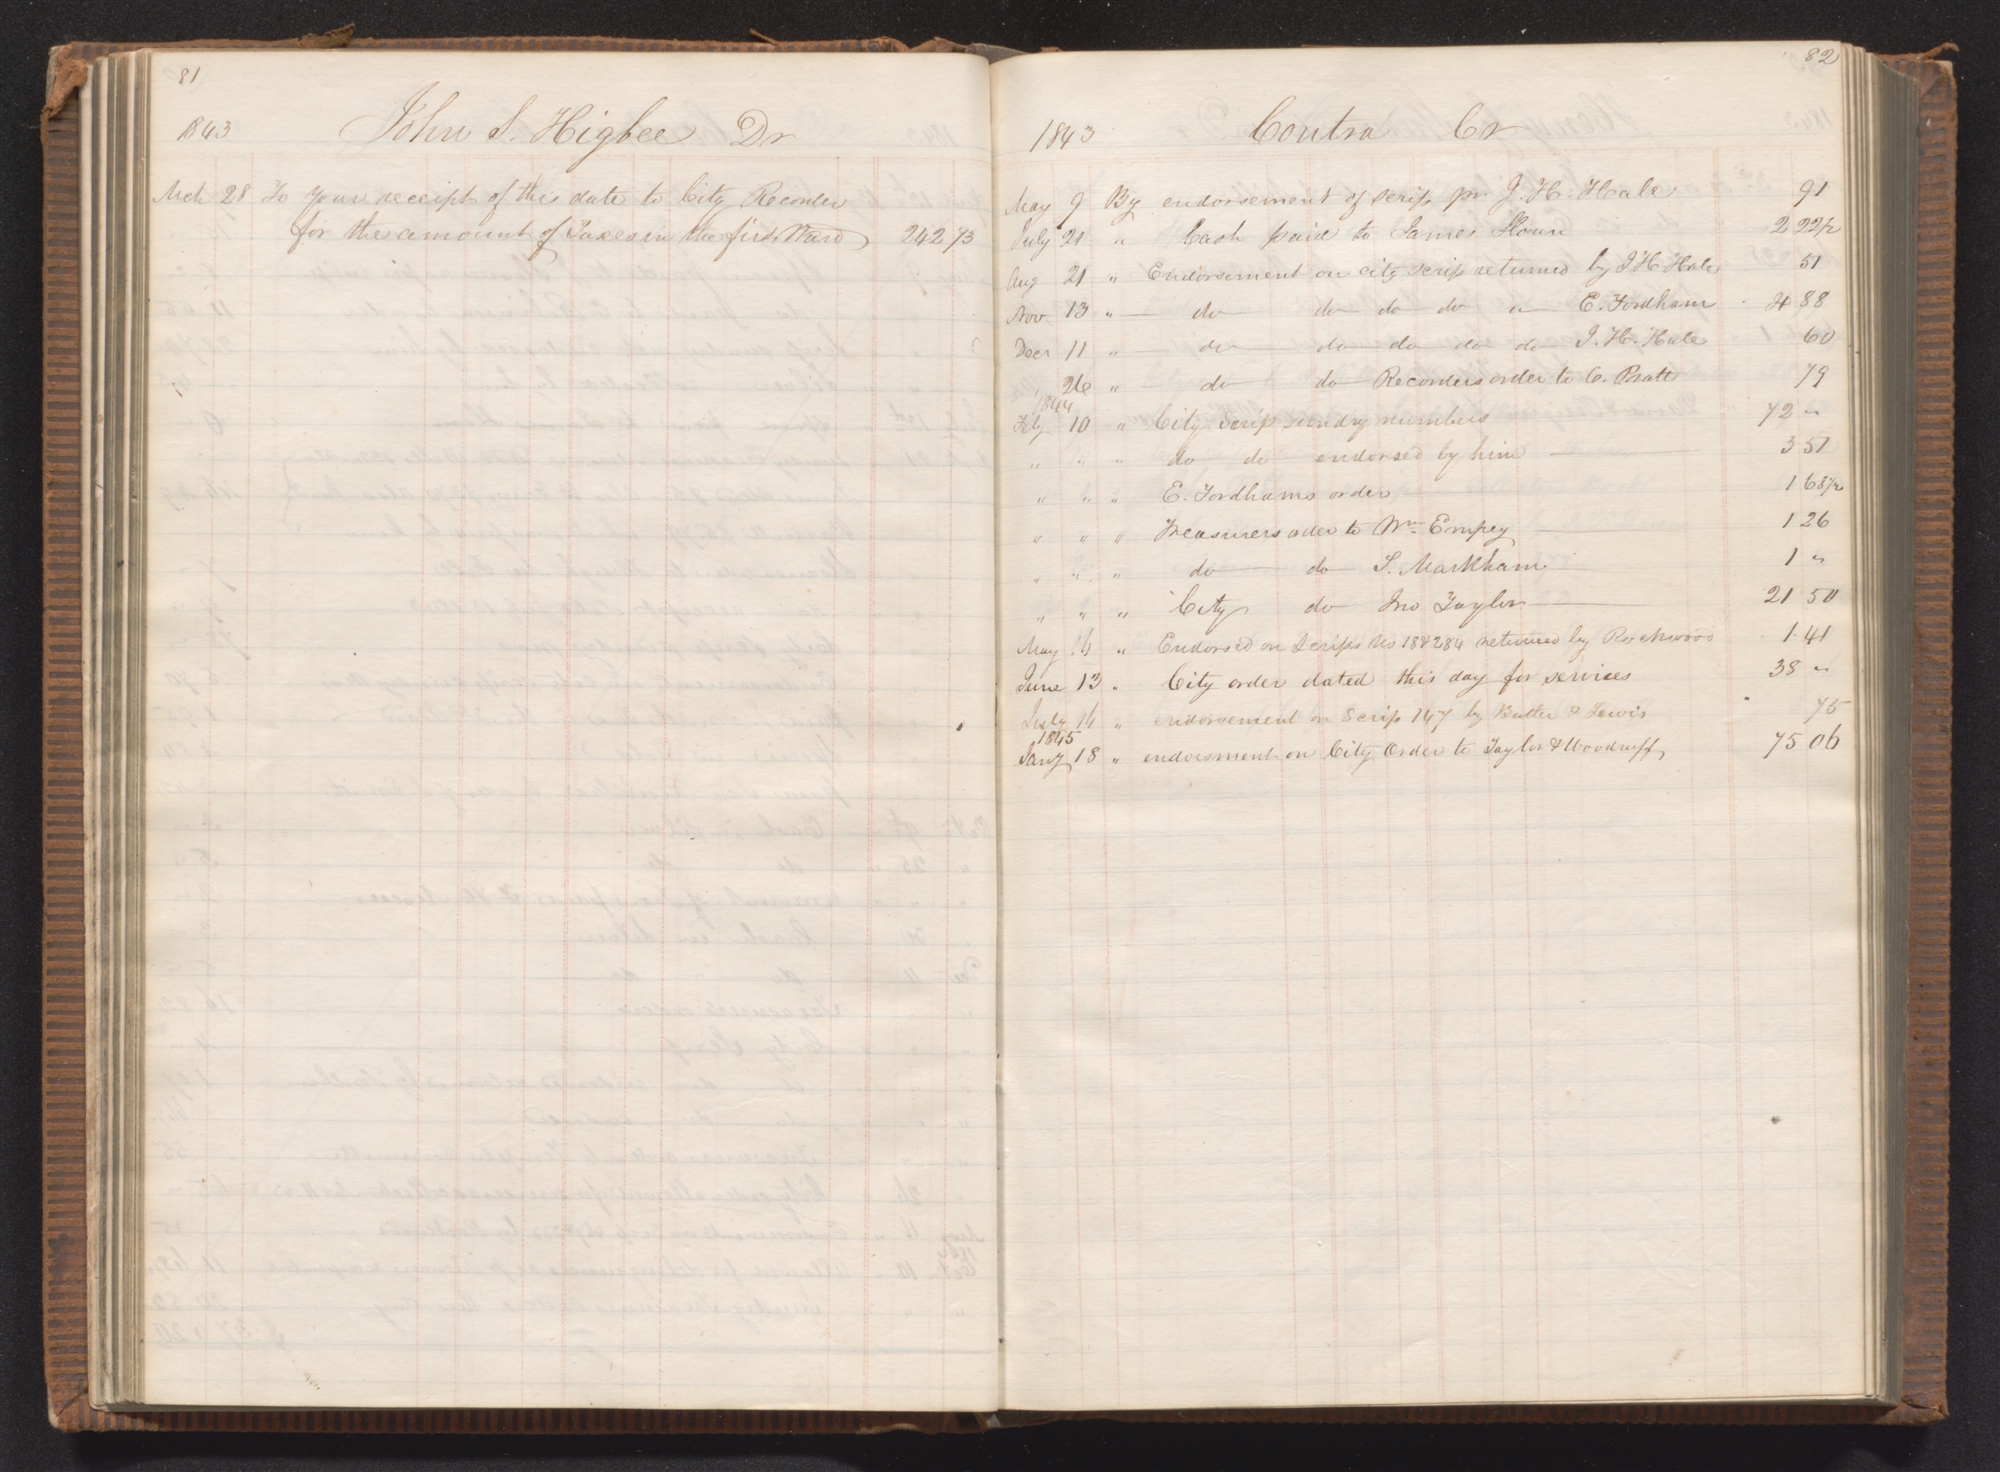 81
1843 John S. Higbee Dr
Mch 28 To your receipt of this date to City Recorder
for the amount of Taxes in the first Ward 242 73
82
1843 Contra Cr
May 9 By endorsement of scrip pr J. H. Hale 91
July 21 " Cash paid to James Sloan 2 22½
Aug 21 " Endorsement on city scrip returned by J H Hale 51
Nov 13 " do do do do " E. Fordham 4 88
Decr 11 " do do do do do J. H. Hale 60
" 26 " do do Recorders order to C. Pratt 79
1844
Feby 10 " City Scrip sundry numbers 72 "
" " " do do endorsed by him 3 51
" " " E. Fordhams order 1 68½
" " " Treasurers order to Wm Empey 1 26
" " " do do S. Markham 1 "
" " " City do Jno Taylor 21 50
May 14 " Endorsed on Scrips No 18 & 284 returned by Rockwood 1 41
June 13 " City order dated this day for services 38 "
July 14 " endorsement on Scrip 147 by Butler & Lewis 75
1845
Jany 18 " endorsment on City Order to Taylor & Woodruff 75 06